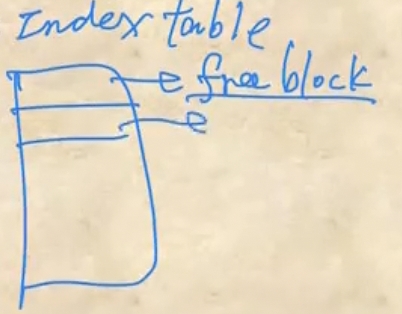 Index table
free block